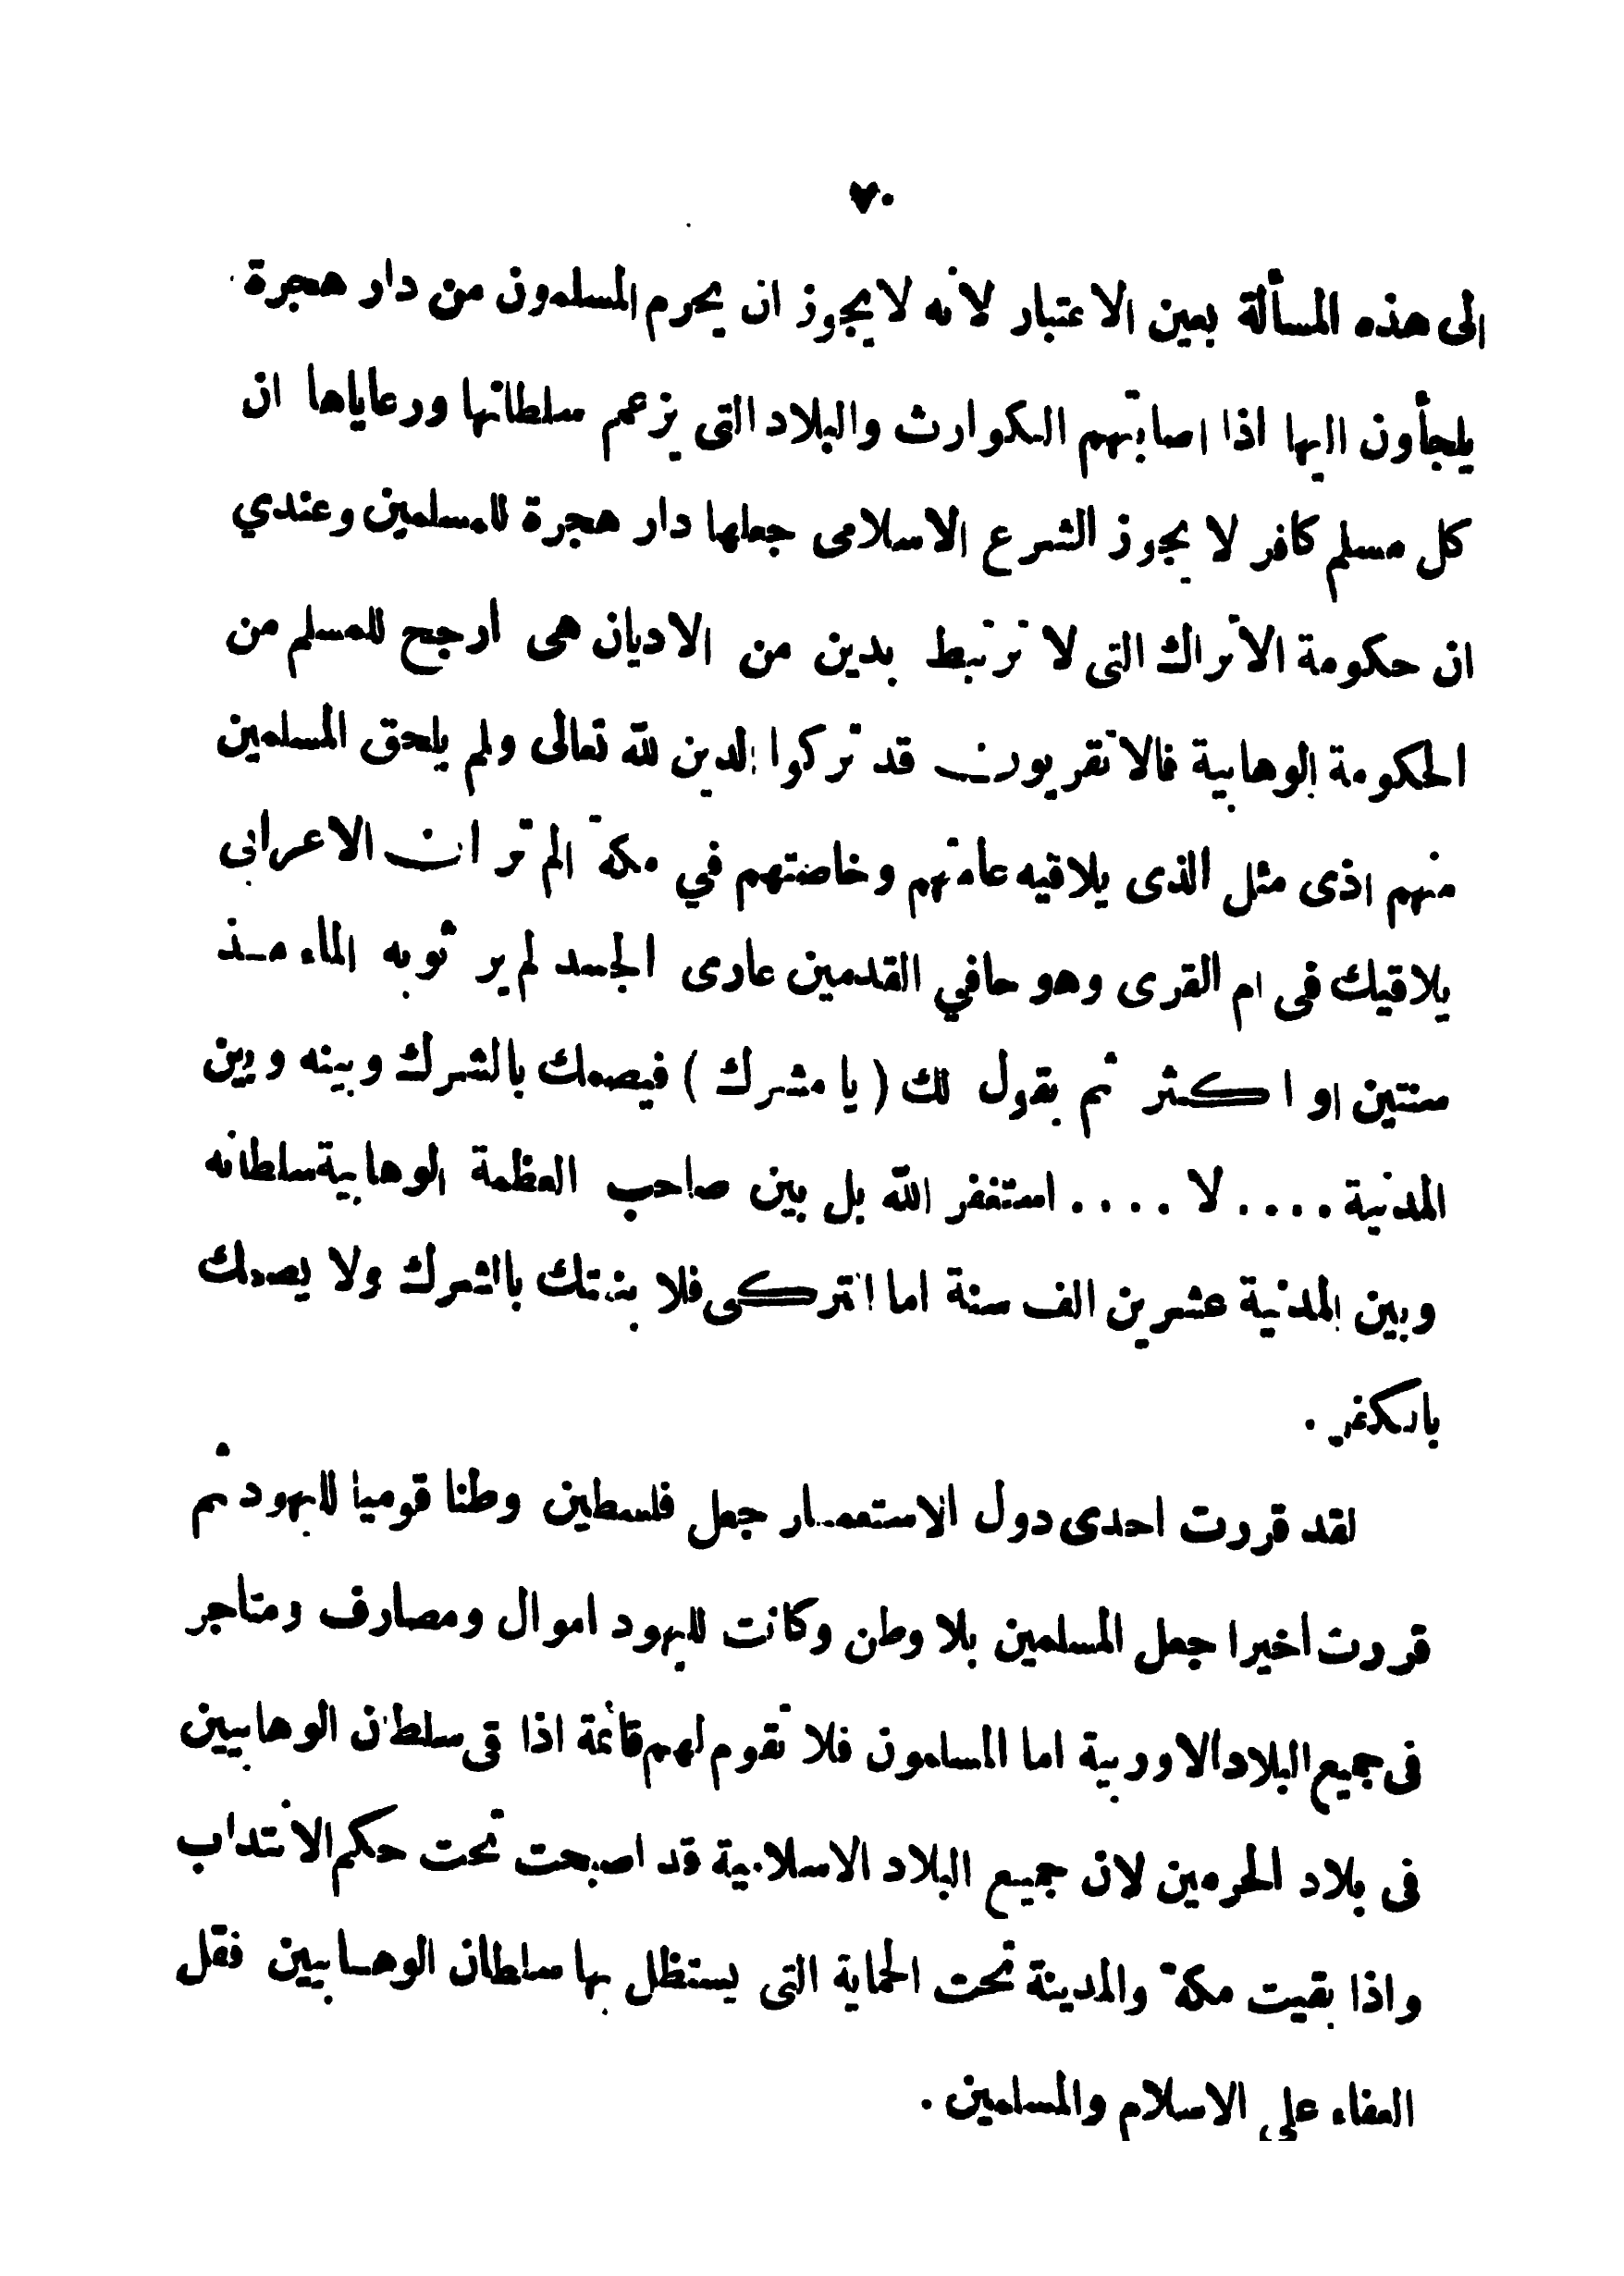 ٧٠
الى هذه المسألة بعين الاعتبار لانه لا يجوز ان يحرم المسلمون من دار هجرة
يلجأون اليها اذا اصابتهم الكوارث والبلاد التى يزعم سلطانها ورعاياها ان
كل مسلم كافر لا يجوز الشرع الاسلامى جعلها دار هجرة للمسلمين وعندي
ان حكومة الاتراك التى لا ترتبط بدين من الاديان هى ارجح للمسلم من
الحكومة الوهابية فالانقريون قد تركوا الدين لله تعالى ولم يلحق المسلمين
منهم اذى مثل الذى يلاقيه عامتهم وخاصتهم في مكة الم تر ان الاعرابى
يلاقيك فى ام القرى وهو حافي القدمين عارى الجسد لم ير ثوبه الماء منذ
سنتين او اكثر ثم يقول لك ( يا مشرك ) فيصمك بالشرك وبينه وبين
المدنية .... لا .... استغفر الله بل بين صاحب العظمة الوهابية سلطانه
وبين المدنية عشرين الف سنة اما التركى فلا ينعتك بالشرك ولا يصمك
بالكفر .
لقد قررت احدى دول الاستعمار جعل فلسطين وطنا قوميا لليهود ثم
قررت اخيرا جعل المسلمين بلا وطن وكانت لليهود اموال ومصارف ومتاجر
فى جميع البلاد الاوربية اما المسلمون فلا تقوم لهم قائمة اذا بقى سلطان الوهابيين
فى بلاد الحرمين لان جميع البلاد الاسلامية قد اصبحت تحت حكم الانتداب
واذا بقيت مكة والمدينة تحت الحماية التى يستظل بها سلطان الوهابيين فقل
العفاء على الاسلام والمسلمين .